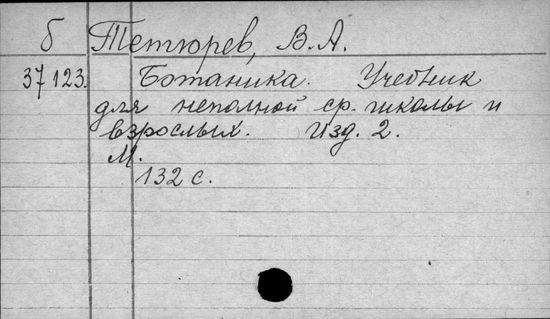 б Тетюрев, В.А.
37123. Ботаника. Учебник
для неполной ср. школы и
взрослых. Изд. 2.
М.
132 с.